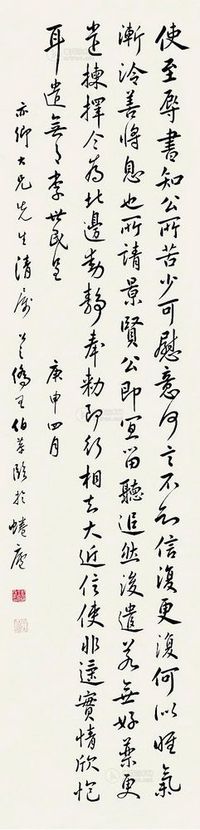 使至辱書知公所苦少可慰意何言不知信復更復何似唯氣
漸冷善將息也所請景賢公即宜留聽追然後遣若無好藥更
遣揀擇今為北邊動靜奉勅即行相去大近信使非遠實情欣抱
耳遣無李世民呈 庚申四月
亦卿大兄先生清屬 僑王伯恭臨於蜷廬